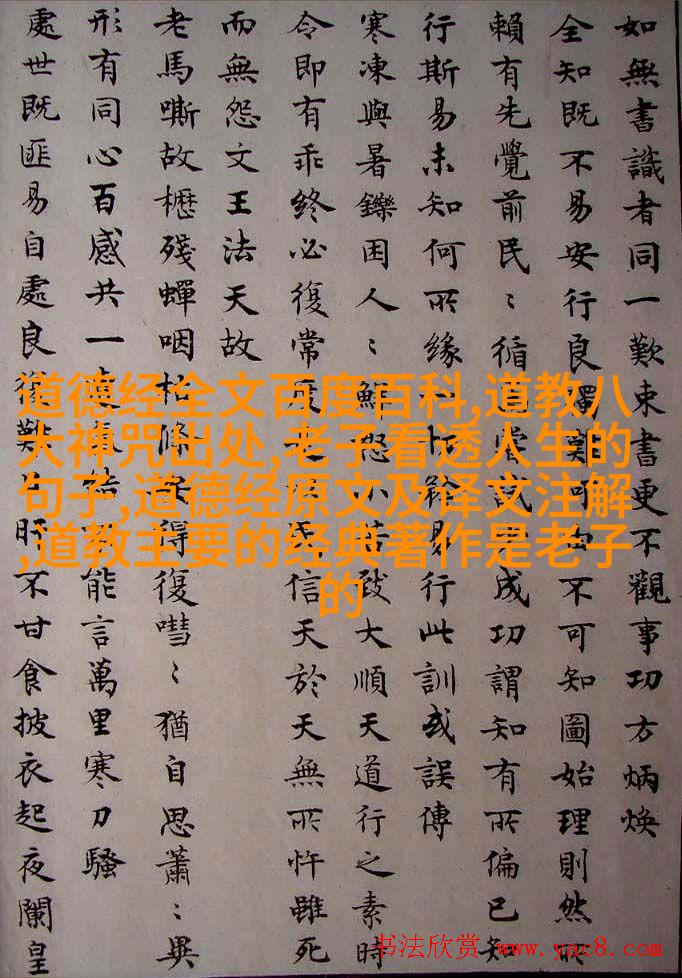 如無書識者同一歎束書更不觀事功方炳煥
全知既不易安行良獨莫可由不可知圖始理則然所
賴有先覺前民〻循常成功謂知有所偏已知
行斯易未知何所緣一易行此訓或誤傳
寒凍與暑鑠困人〻鮮怨致大順天道行之素時
令即有乖終必復常信天於天無所忤雖死
而無怨文王法天故
老馬嘶故櫪殘蟬咽枯條得復嘒〻猶自思蕭〻異
形有同心百感共一能言萬里寒刀騷
處世既匪易自處良獨難不甘食披衣起夜闌皇
道德经全文百度百科,道教八
大神咒出处,老子看透人生的
句子,道德经原文及译文注解
,道教主要的经典著作是老子
的
书法欣赏 www.yac8.com